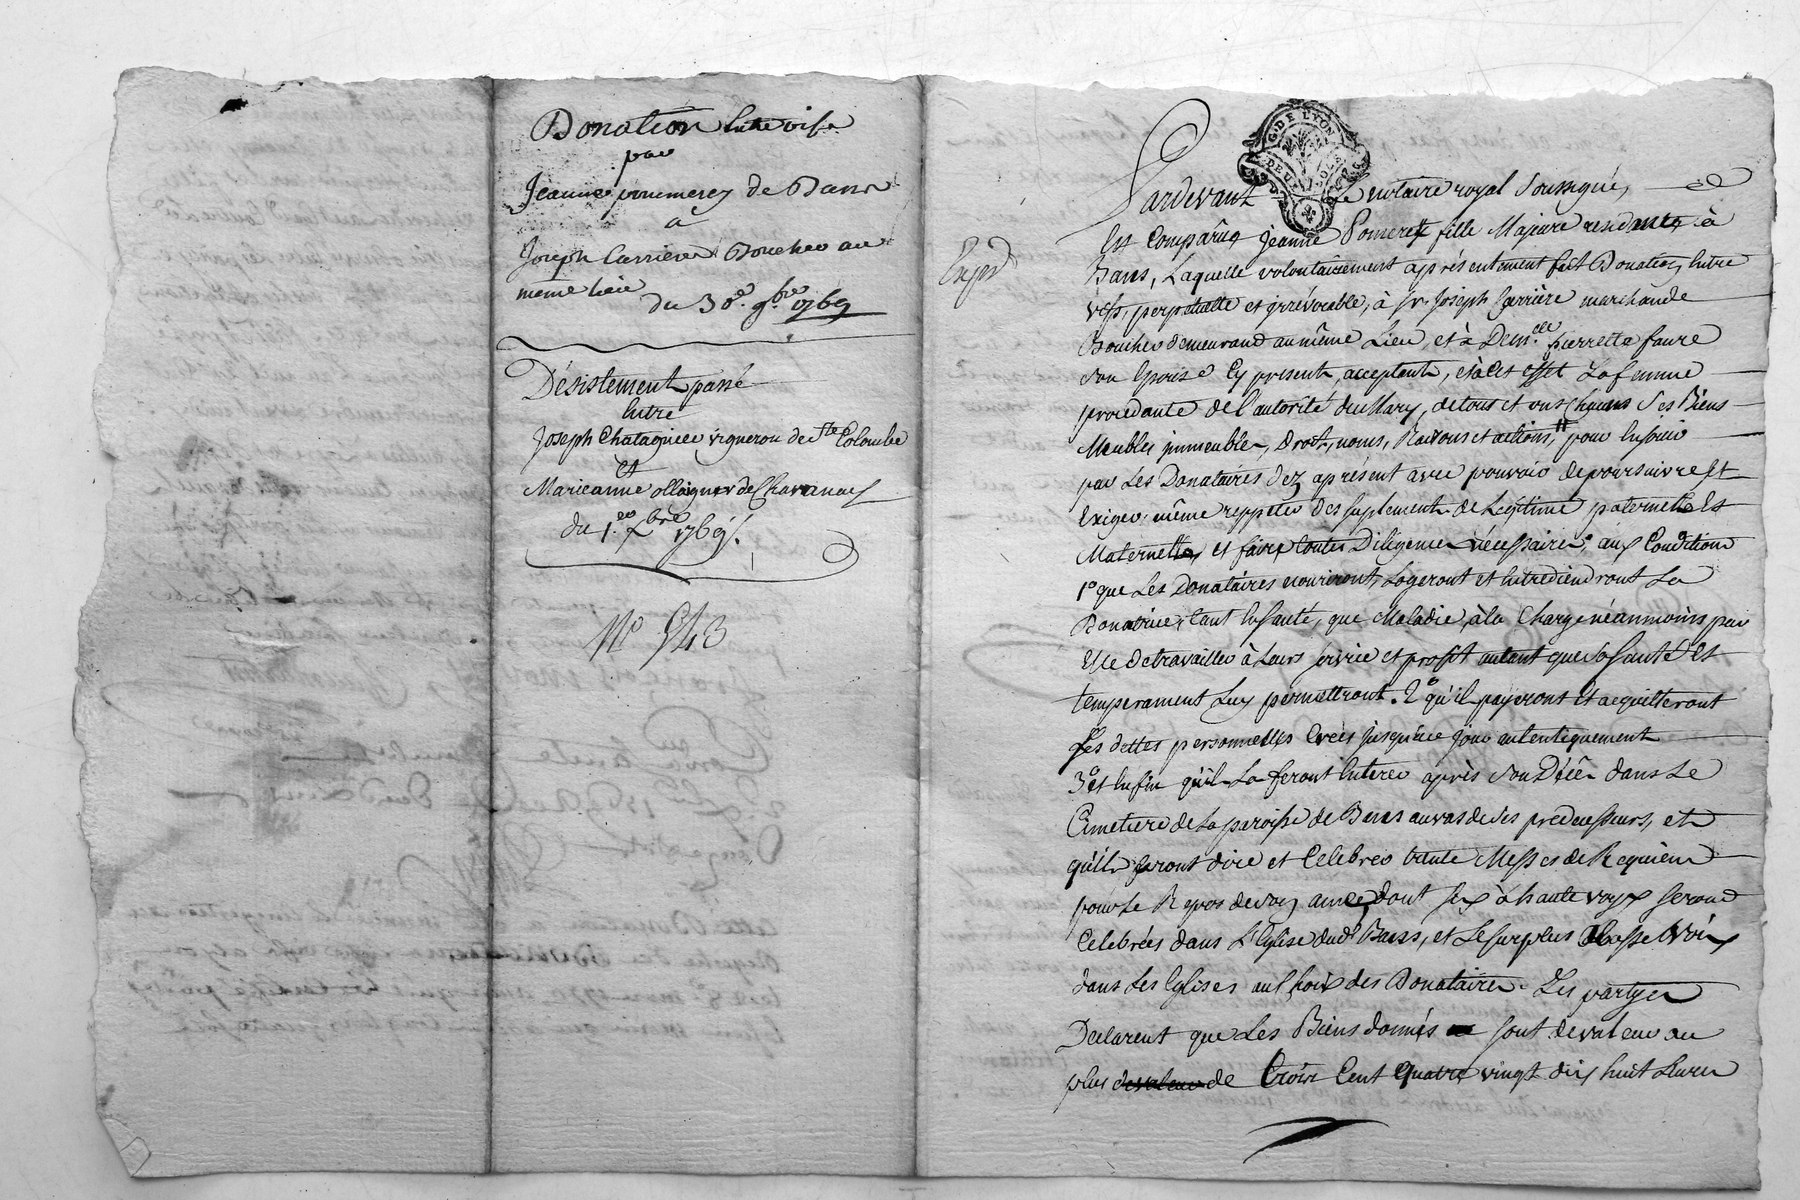 Donation Entre vifs
par
Jeanne pommerey de Bans
à
Joseph Carriere Boucher au
meme lieu
du 30.e 9.bre 1769
Désistement passé
Entre
Joseph Chatagnier vigneron de Ste Colombe
et
Marieanne ollagner de Chavanay
du 1.er Xbre 1769.
No 543
G. DE LYON
DEUX SOLS
Expd
Pardevant Le notaire royal Soussigné,
Est Comparüe jeanne Pomerey fille Majeure residante à
Bans, Laquelle volontairement aprésentement fait Donation Entre
vifs, perpetuelle et irrévocable, à Sr joseph Carrière marchand
Boucher demeurand au même Lieu, et à Dem.elle pierrette faure
Son Epouse Cy present, acceptant, et à Cet effet La femme
procedante de l'autorité du Mary, de tous et uns Chacuns Ses Biens
Meubles immeubles, droits, noms, Raisons et actions, pour En jouir
par Les Donataires dez aprésent avec pouvoir de poursuivre Et
Exiger même reppeter des suplements de Légitime paternelle Et
Maternelle, et faire toutes Diligences nécessaires, aux Conditions
1o que Les Donataires nouriront, Logeront et Entrediendront La
Donatrice, tant En Santé, que Maladie, à la Charge néanmoins par
Elle de travailler à Leurs service et profit autant que Sa Santé Et
temperament Luy permettront. 2o qu'il payeront Et acquitteront
Ses dettes personnelles Créés jusqu'à ce jour autentiquement
3o et Enfin qu'il La feront Enterer après Son Décès dans Le
Cimetiere de La paroisse de Bans au vas de Ses predecesseurs, et
qu'ils feront dire et Celebrer trente Messes de Requiem
pour Le Repos de Son ame, dont six à haute voix seront
Celebrées dans L'Eglise dud. Bans, et Le Surplus à Basse Voix
dans Les Eglises au Choix des Donataires. Les partyes
Declarent que Les Biens donnés sont de valeur au
plus de valeur de Trois Cent Quatre vingt dix huit Livres